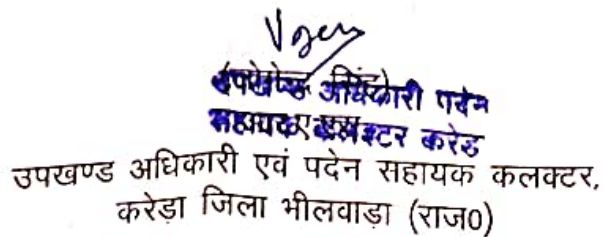 उपखण्ड अधिकारी पदेन
सहायक कलक्टर करेड़ा
उपखण्ड अधिकारी एवं पदेन सहायक कलक्टर,
करेड़ा जिला भीलवाड़ा (राज0)